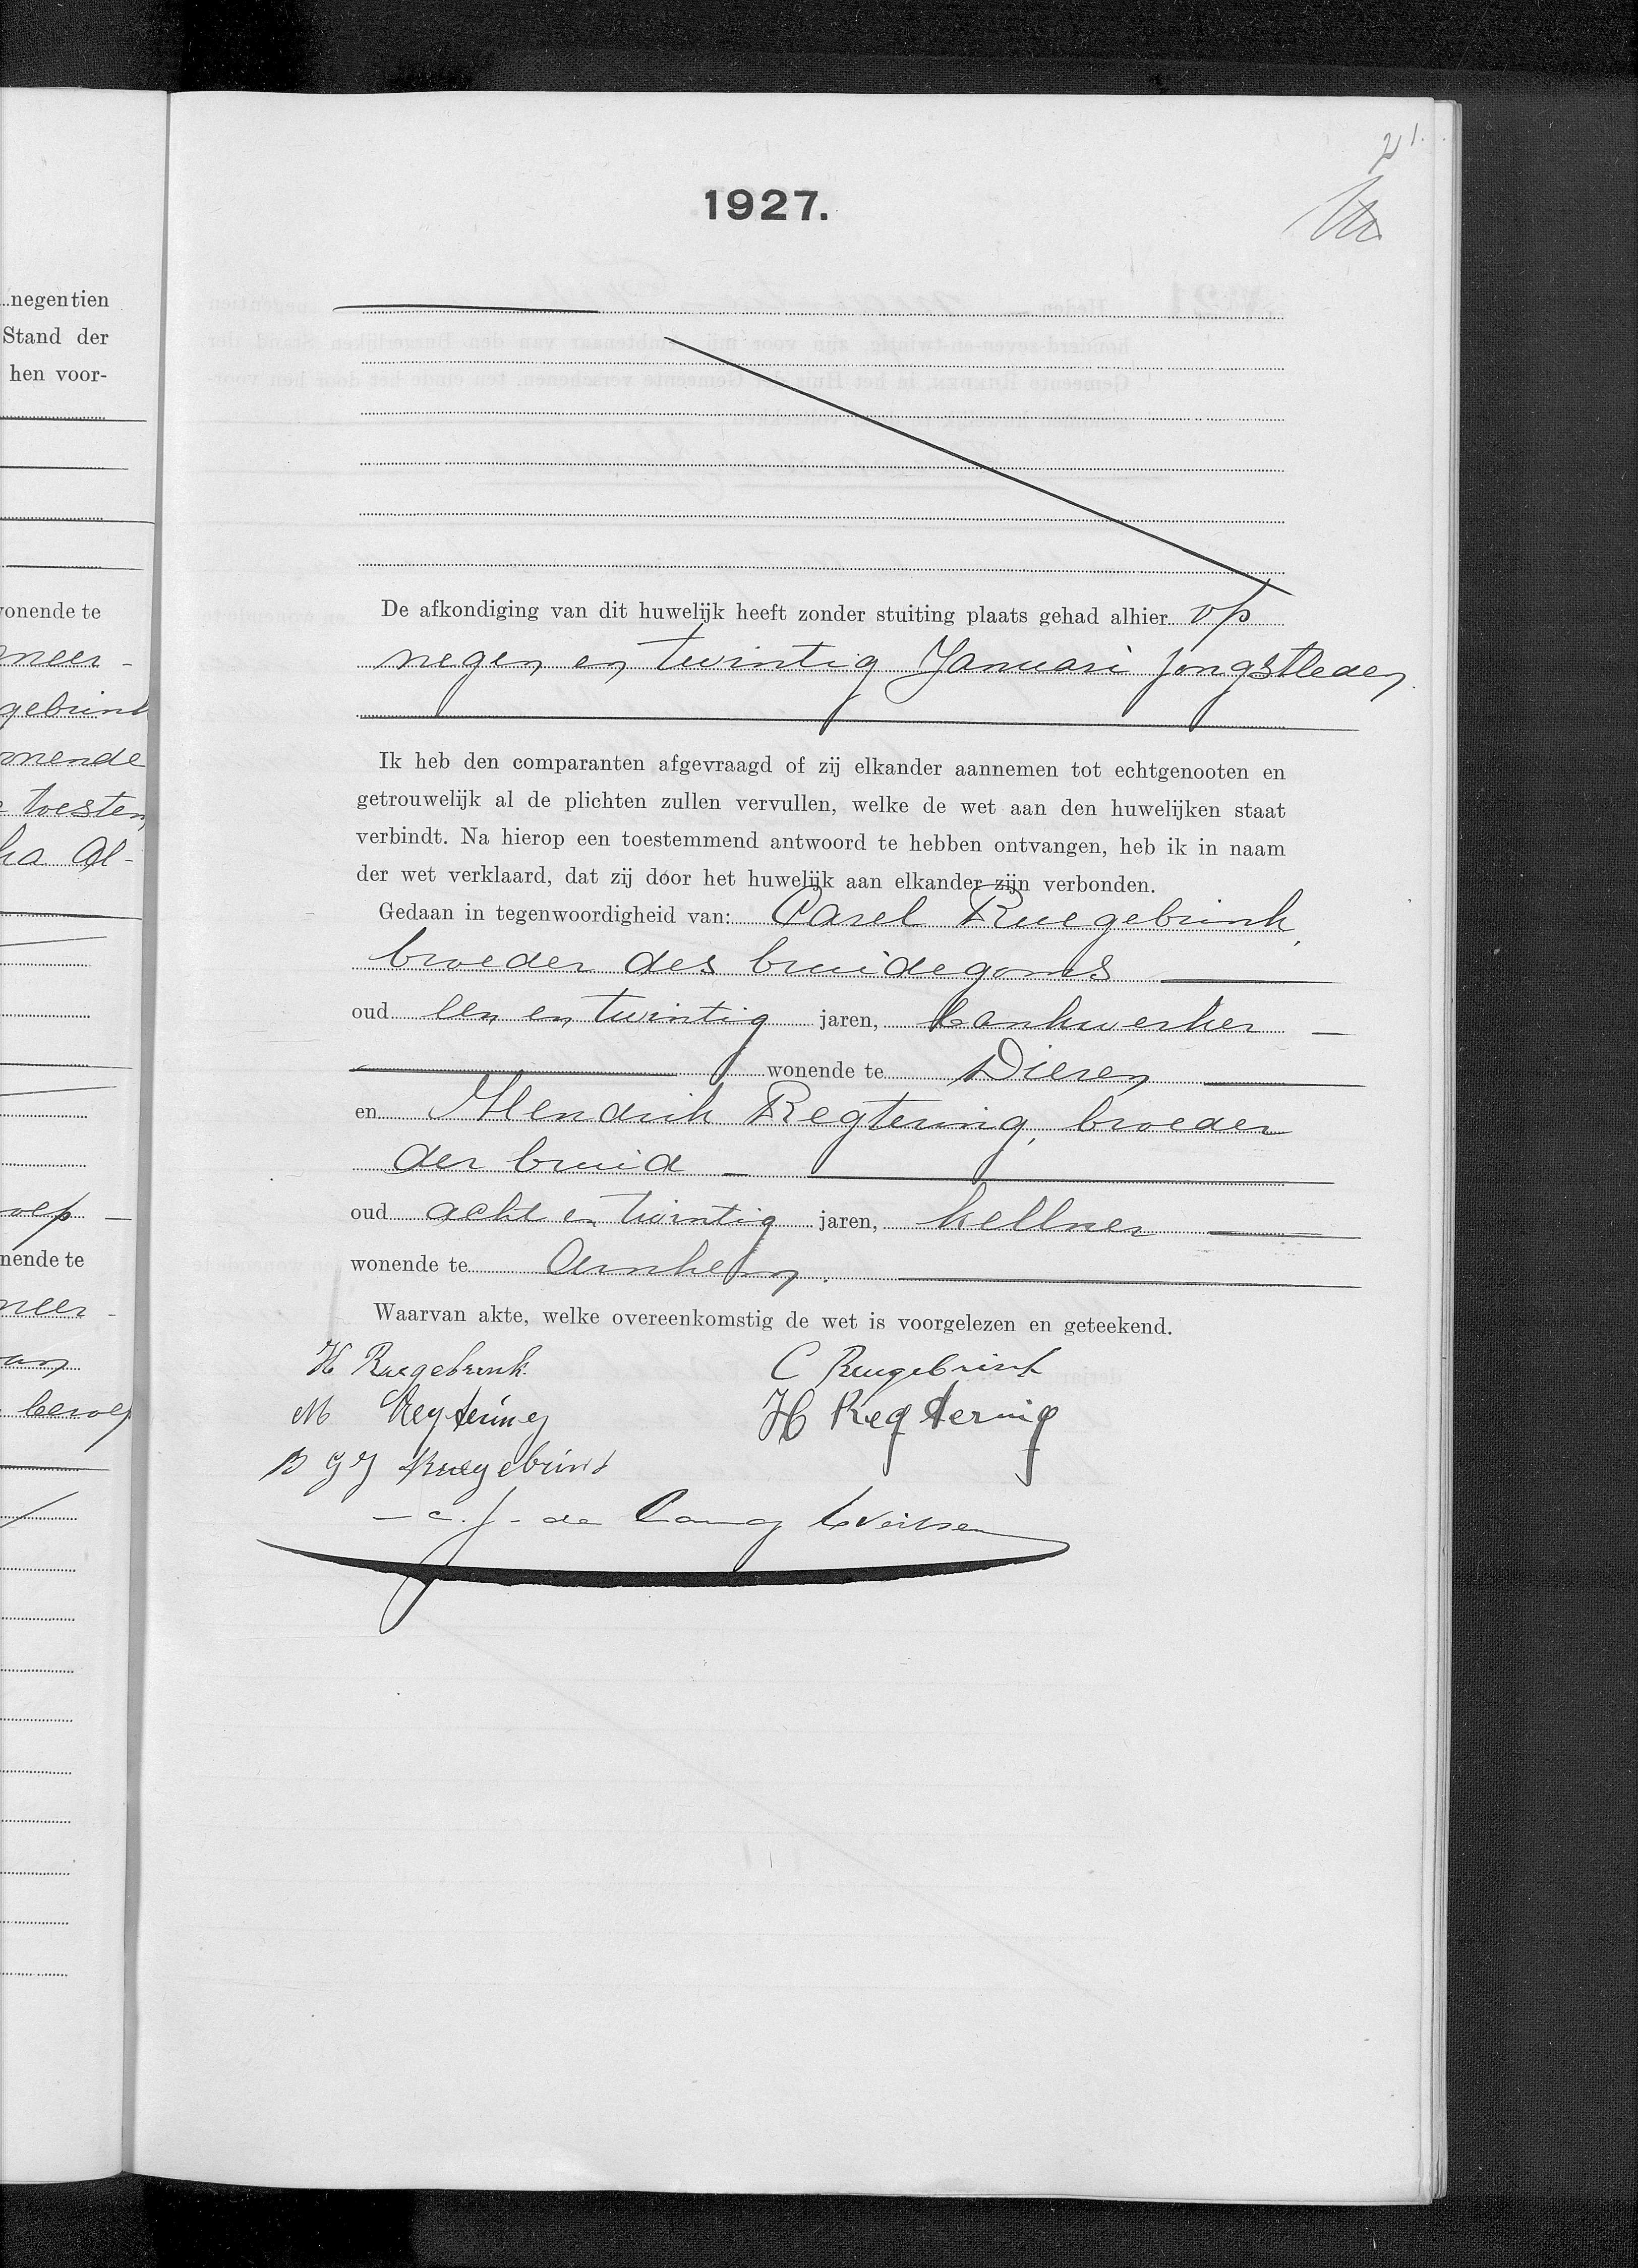 21.
1927.
negentien
Stand der
hen voor-
wonende te
meer -
gebrink
onende
toestem
ha Al-
oep -
nende te
meer -
beroep
De afkondiging van dit huwelijk heeft zonder stuiting plaats gehad alhier op
negen en twintig Januari jongstleden.
Ik heb den comparanten afgevraagd of zij elkander aannemen tot echtgenooten en
getrouwelijk al de plichten zullen vervullen, welke de wet aan den huwelijken staat
verbindt. Na hierop een toestemmend antwoord te hebben ontvangen, heb ik in naam
der wet verklaard, dat zij door het huwelijk aan elkander zijn verbonden.
Gedaan in tegenwoordigheid van: Carel Ruegebrink,
broeder des bruidegoms
oud een en twintig jaren, bankwerker -
wonende te Dieren
en Hendrik Regtering, broeder
der bruid -
oud acht en twintig jaren, kellner
wonende te Arnhem.
Waarvan akte, welke overeenkomstig de wet is voorgelezen en geteekend.
H Ruegebrink. C Reugebrink
M Regtering H Regtering
B G J Ruegebrink